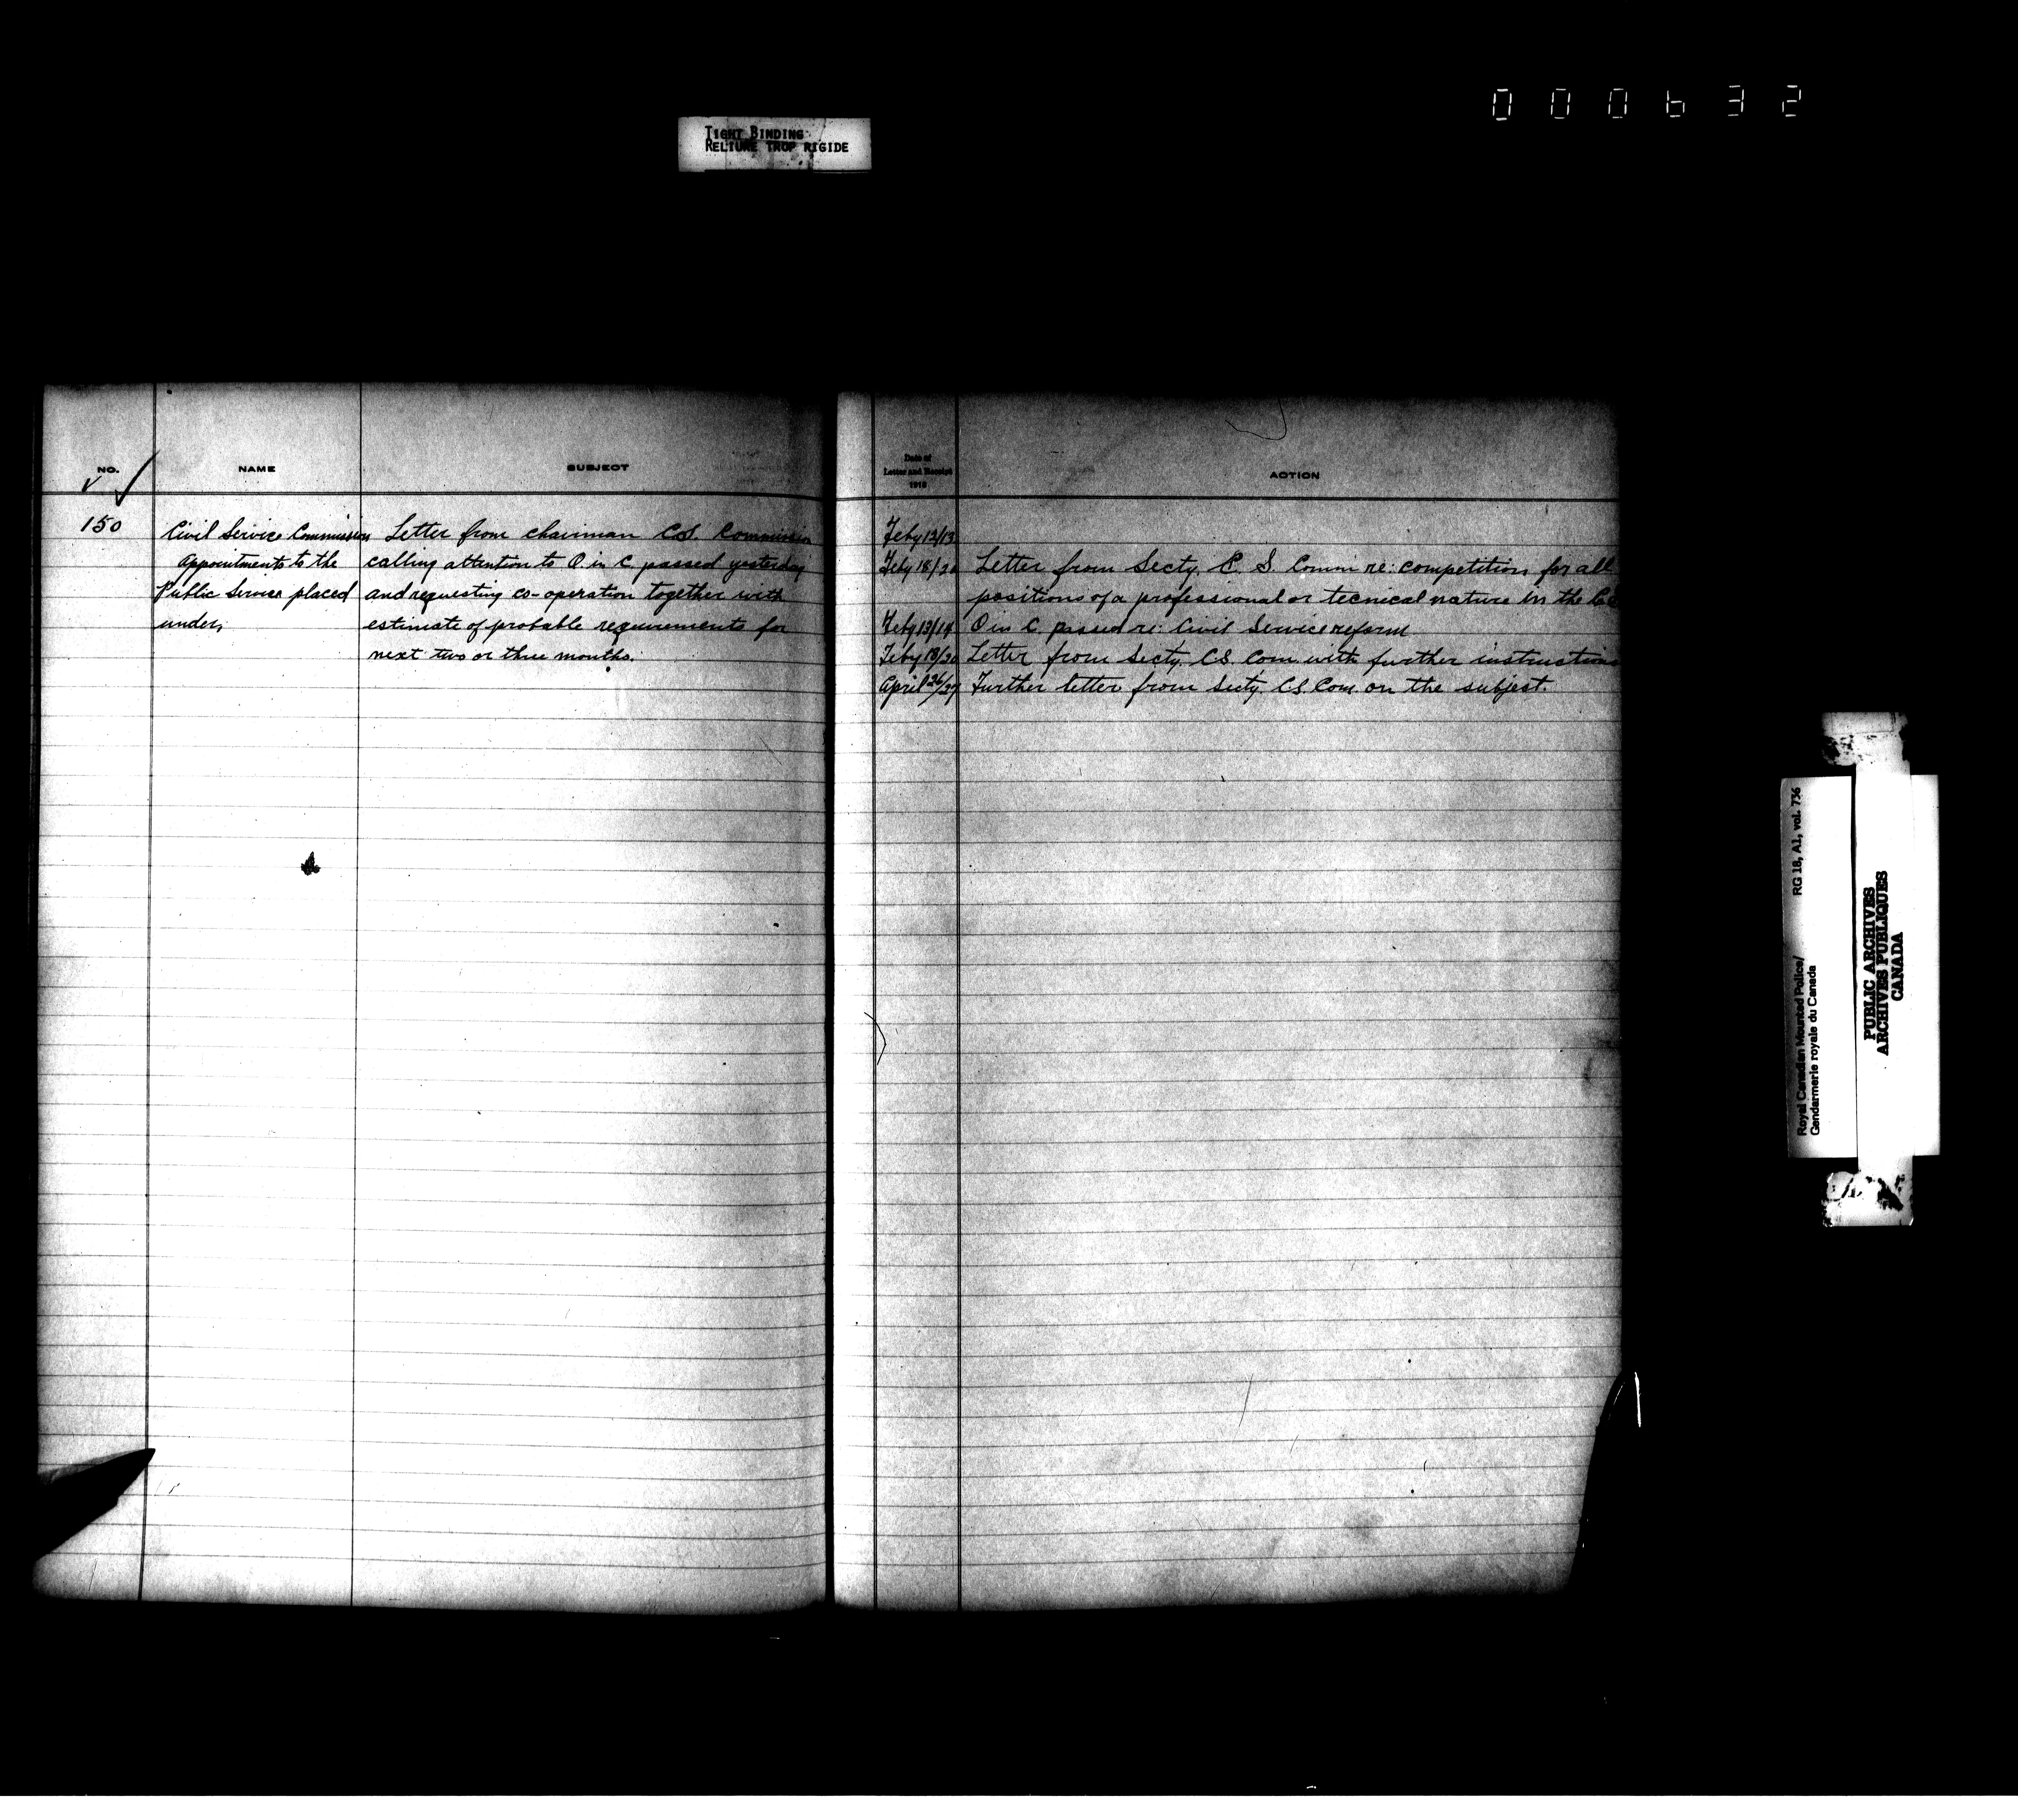 000632
TIGHT BINDING
RELIURE TROP RIGIDE
NO.
NAME
SUBJECT
150
Civil Service Commission
Appointments to the
Public Service placed
under,
Letter from chairman C.S. Commission
calling attention to O. in C. passed yesterday
and requesting co-operation together with
estimate of probable requirements for
next two or three months.
Date of
Letter and Receipt
1918
ACTION
Feby 12/13
Feby 18/20 Letter from Secty. C. S. Comm re: competition for all
positions of a professional or tecnical nature in the
Feby 13/14 O in C. passed re: Civil Service reform
Feby 18/20 Letter from Secty. C.S. Com. with further instructions
April 26/27 Further letter from Secty C.S. Com. on the subject.
Royal Canadian Mounted Police/ RG 18, A1, vol. 736
Gendarmerie royale du Canada
PUBLIC ARCHIVES
ARCHIVES PUBLIQUES
CANADA